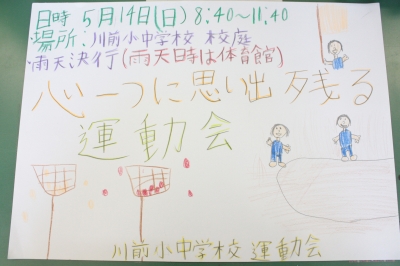 日時 5月14日(日) 8:40〜11:40
場所:川前小中学校 校庭
雨天決行(雨天日時は体育館)
心一つに思い出残る
運動会
川前小中学校 運動会